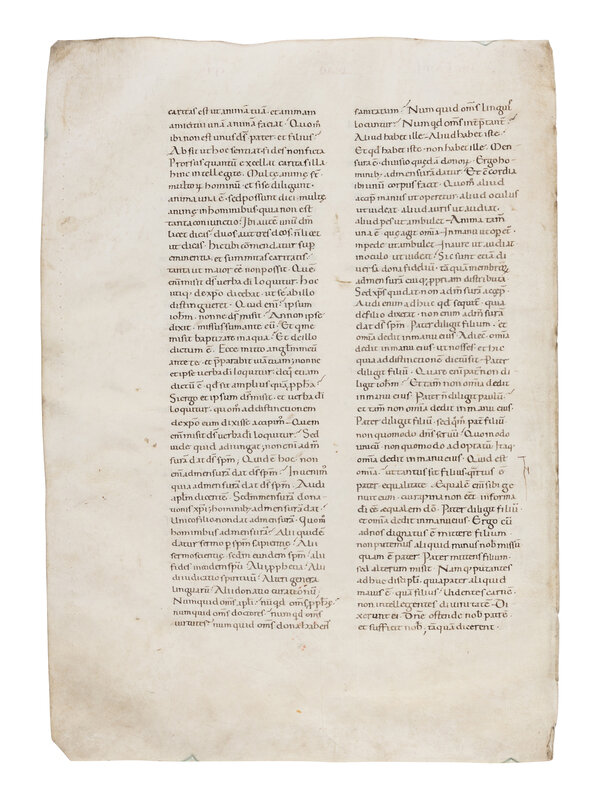 caritas est ut animā tuā · et animam
amici tui unā animā faciat · Quom̄
ibi non est unus d̄s pater et filius ·
Absit ut hoc sentiat fides non ficta
Prorsus quantū excellat caritas illa
hinc intellegite · Multę animę st̄
multorū hominū · et si se diligunt ·
anima una ē · sed possunt dici multę
animę in hominibus · quia non est
tanta coniunctio · Ibi autē unū dm̄
licet dicas · duos aut tres deos · n̄ licet
ut dicas · hic tibi comendatur sup
eminentia · et summitas caritatis ·
tanta ut maior eē non possit · Quē
enī misit d̄s verba dī loquitur · hoc
utiq; de xp̄o dicebat · ut se ab illo
distingueret · Quid enī · ipsum
ioh̄m · nonne d̄s misit · An non ipse
dixit · missus sum ante eū · Et qui me
misit baptizare in aqua · Et de illo
dictum ē · Ecce mitto anglm̄ meū
ante te · et p̄parabit viā tuam; nonne
et ipse verba dī loquitur · de q̄ etiam
dictū ē qd̄ sit amplius quā pph̄a ·
Si ergo et ipsum d̄s misit · et verba dī
loquitur · quom̄ ad distinctionem
de xp̄o eum dixisse accipim̄ · Quem
enī misit d̄s verba dī loquitur · Sed
vide quid adiungat; non enī ad m̄
surā dat d̄s sp̄m · Quid ē hoc non
enī ad mensurā dat d̄s sp̄m · Invenim̄
quia ad mensurā dat d̄s sp̄m · Audi
aplm̄ dicentē · Sed mensurā dona
tionis xp̄i; hominib; ad mensurā dat ·
Unico filio non dat ad mensurā · Quom̄
hominibus ad mensurā · Alii quidē
datur sermo p sp̄m sapientię · Alii
sermo scientię · sedm̄ eundem sp̄m · alii
fides in eodem sp̄u · Alii pphetia · Alii
diiudicatio spirituū · Alteri genera
linguarū · Alii donatio curationū ·
Numquid om̄s apli · nūqd om̄s pph̄ę ·
numquid om̄s doctores · numqd om̄s
virtutes · numquid om̄s dona habent
sanitatum · Numquid om̄s linguis
locuntur · Numqd om̄s int̄p̄tant̄ ·
Aliud habet ille · Aliud habet iste ·
Et qd̄ habet iste · non habet ille · Men
sura ē · divisio quędā donorū · Ergo ho
minib; ad mensurā datur · Et cōcordia
ibi unū corpus facit · Quom̄ aliud
accip̄ manus ut operetur · aliud oculus
ut videat · aliud auris ut audiat ·
aliud pes ut ambulet · Anima tam̄
una ē · quę agit omīa · In manu ut opet̄ ·
in pede ut ambulet · In aure ut audiat
in oculo ut videat · Sic sunt etiā di
versa dona fideliū · tāquā membris
ad mensurā cuiq; ppriam distributa
Sed xp̄s qui dat · non ad m̄surā accep̄ ·
Audi enim adhuc qd̄ sequit̄ · quia
de filio dixerat · non enim ad m̄surā
dat d̄s sp̄m · Pater diligit filium · et
omīa dedit in manu eius · Adiec̄ · omīa
dedit in manu eius · ut nosses et hic
quia ad distinctionē dictū sit · Pater
diligit filiū · Quare enī pat̄ non di
ligit ioh̄m · Et tam̄ non omīa dedit
in manu eius · Pater n̄ diligit paulū ·
et tam̄ non omīa dedit in manu eius ·
Pater diligit filiū · sed qm̄ pat̄ filiū
non quomodo dn̄s servū · Quomodo
unicū · non quomodo adoptatū · Itaq;
omīa dedit in manu eius · Quid est
omīa · ut tantus sit filius · q̄ntus ē
pater · equalitate · Equalē enī sibi ge
nuit eum · cui rapina non eēt · in forma
dī eē equalem dō · Pater diligit filiū ·
et omīa dedit in manu eius · Ergo cū
ad nos dignatus ē mittere filium ·
non putemus aliquid minus nob̄ missū
quam ē pater · Pater mittens filium ·
sed alterum misit · Nam q; putantes
adhuc discipli · quia pater aliquid
maius ē · quā filius · Videntes carnē ·
non intellegentes divinitatē · Di
xerunt ei · Dn̄e ostende nob̄ patrē ·
et sufficit nob̄; tāquā dicerent ·